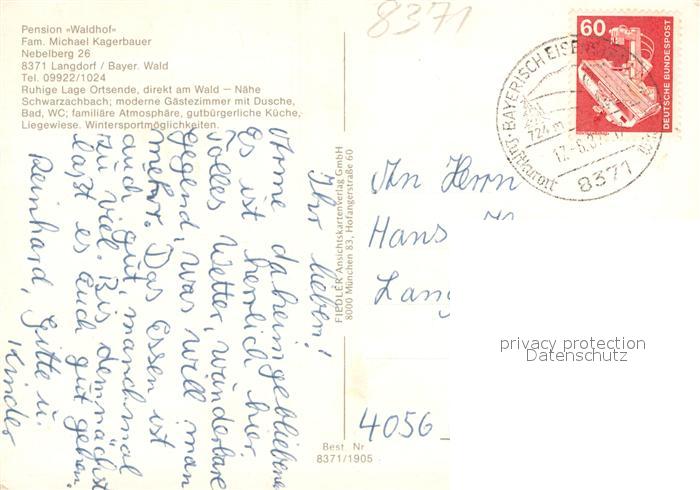 Pension »Waldhof«
Fam. Michael Kagerbauer
Nebelberg 26
8371 Langdorf / Bayer. Wald
Tel. 09922/1024
Ruhige Lage Ortsende, direkt am Wald — Nähe
Schwarzachbach; moderne Gästezimmer mit Dusche,
Bad, WC; familiäre Atmosphäre, gutbürgerliche Küche,
Liegewiese. Wintersportmöglichkeiten.
Ihr lieben!
Arme daheimgebliebene
Es ist herrlich hier.
Tolles Wetter, wunderbare
Gegend, was will man
mehr. Das Essen ist
auch gut, manchmal
zu viel. Bis demnächst
laßt es Euch gut gehen.
Reinhard, Gitte u.
Kinder
FIEDLER Ansichtskartenverlag GmbH
8000 München 83, Hofangerstraße 60
Best. Nr
8371/1905
8371
60
DEUTSCHE BUNDESPOST
BAYERISCH EISEN
724 m
Luftkurort
8371
An Herrn
Hans
Lang
4056
privacy protection
Datenschutz